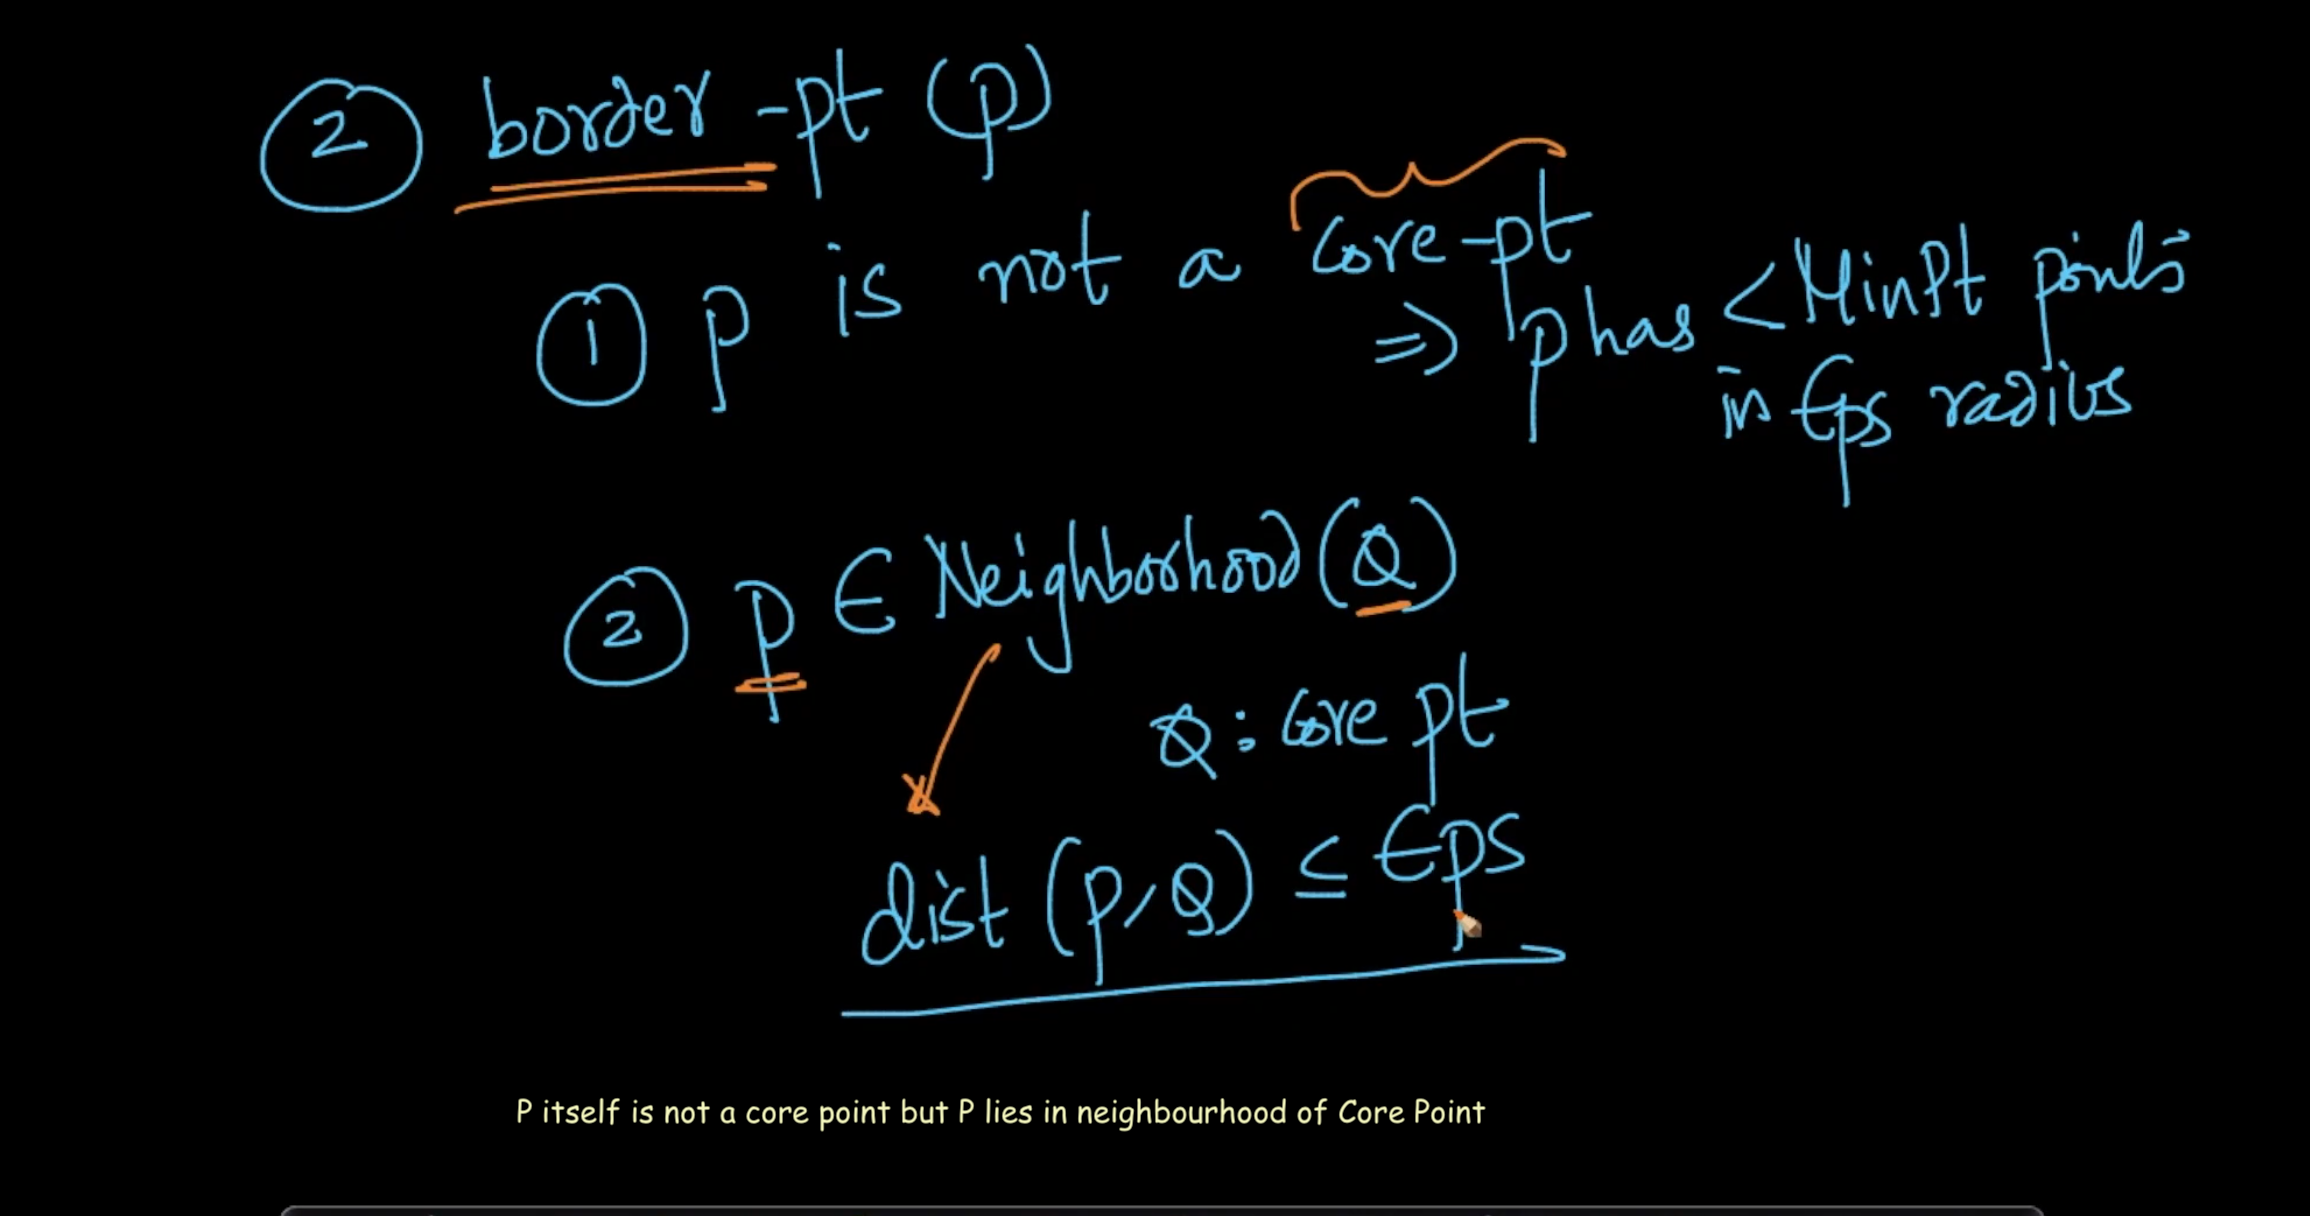 ② border-pt (p)
① p is not a core-pt
⇒ p has < MinPt points
in Eps radius
② p ∈ Neighborhood(Q)
Q: core pt
dist (p, Q) ≤ Eps
P itself is not a core point but P lies in neighbourhood of Core Point